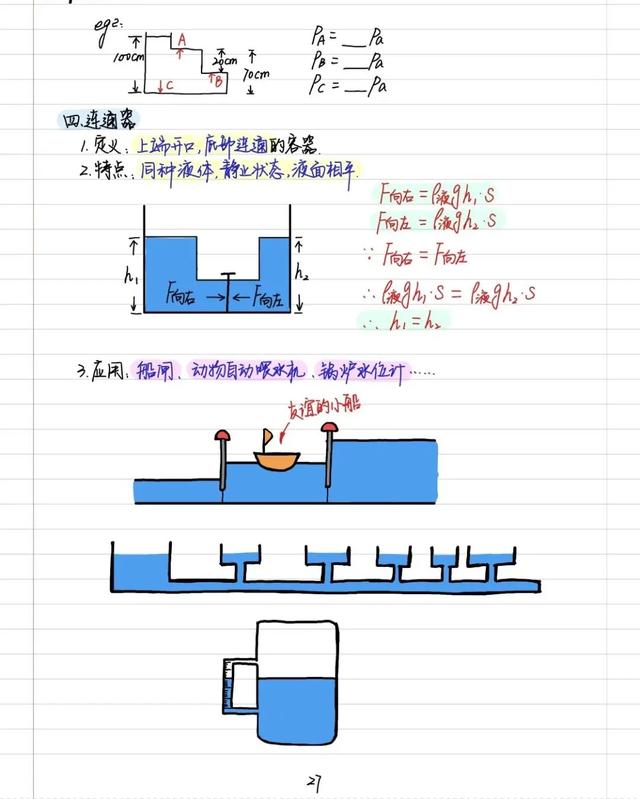 eg2:
A
100cm
20cm
70cm
B
C
P_A = ___ Pa
P_B = ___ Pa
P_C = ___ Pa
四.连通器
1.定义:上端开口,底部连通的容器.
2.特点:同种液体,静止状态,液面相平.
h₁
F向右
F向左
h₂
F向右 = ρ液gh₁·S
F向左 = ρ液gh₂·S
∵ F向右 = F向左
∴ ρ液gh₁·S = ρ液gh₂·S
∴ h₁ = h₂
3.应用:船闸、动物自动喂水机、锅炉水位计……
友谊的小船
27